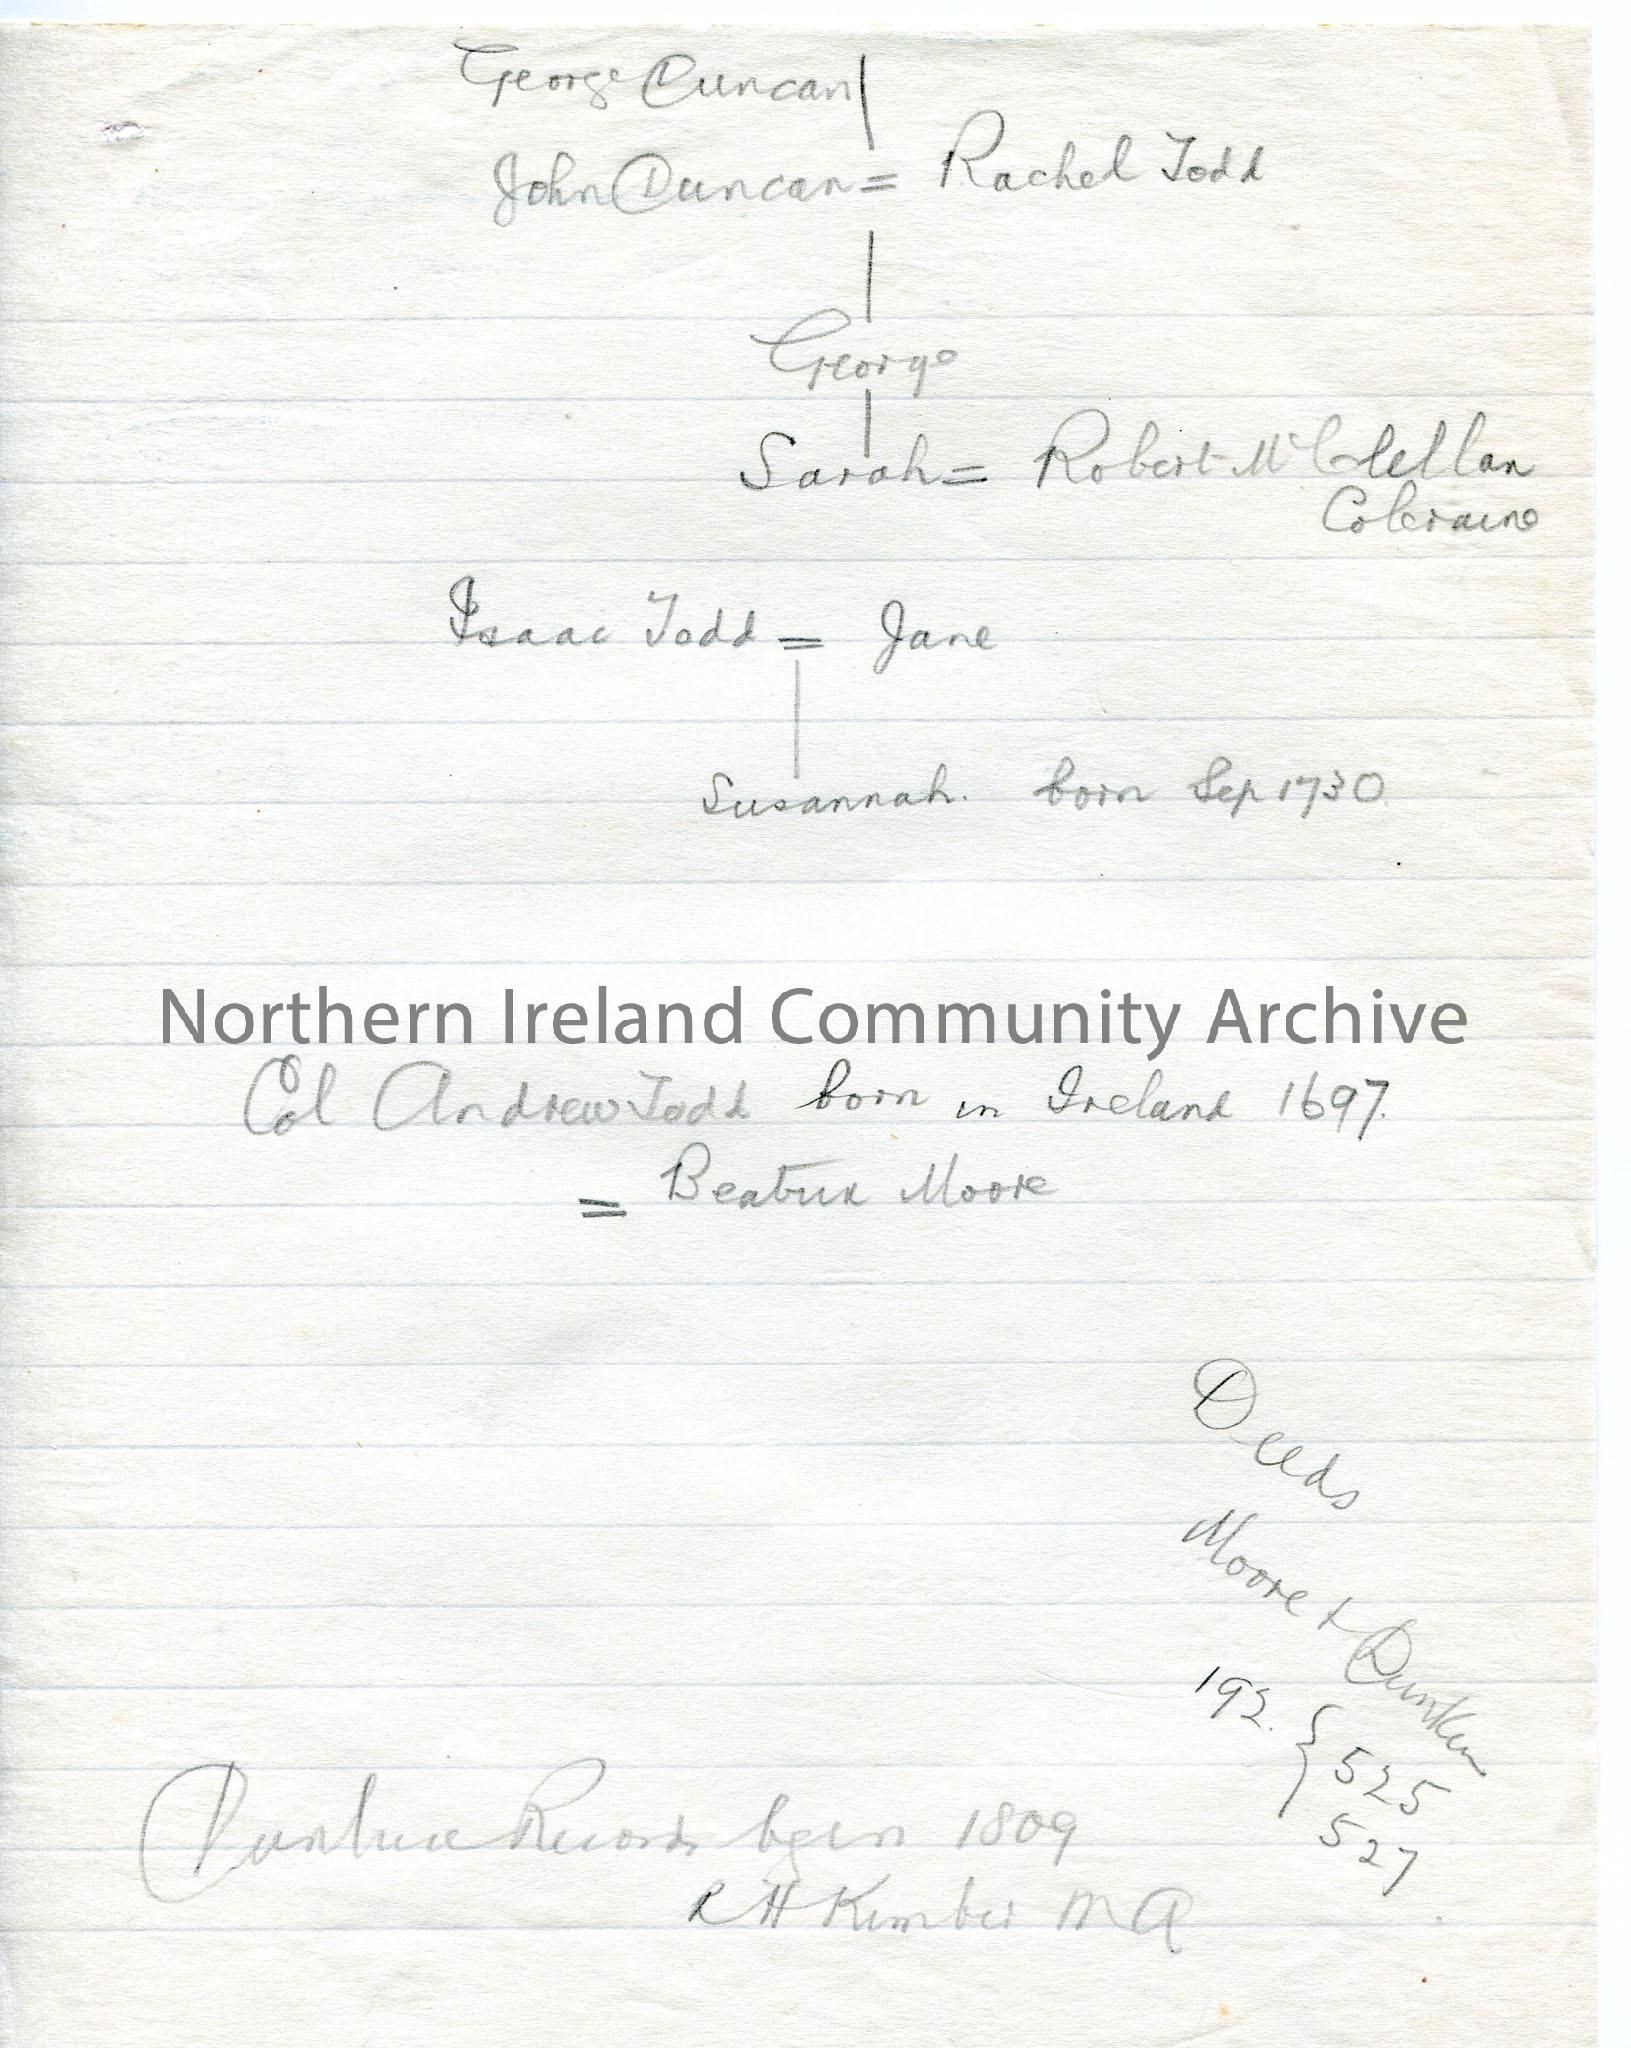 George Duncan
John Duncan = Rachel Todd
George
Sarah = Robert McClellan
Coleraine
Isaac Todd = Jane
Susannah. born Sep 1730
Northern Ireland Community Archive
Col Andrew Todd born in Ireland 1697.
= Beatrix Moore
Deeds
Moore + Dunken
192. { 525
527
Dunluce Records begin 1809
R H Kimber MA